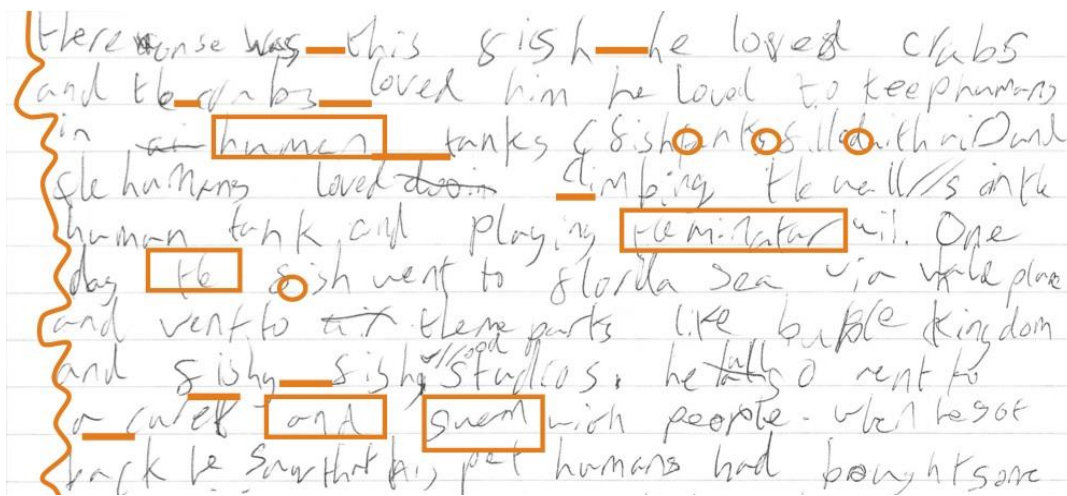 there onse was this fish he loved crabs
and the crabs loved him he loved to keep humans
in human tanks (fish tanks filled with air) and
the humans loved climbing the walls in the
human tank and playing wii. One
day the fish went to florida sea via whale plane
and went to theme parks like buble kingdom
and fishy fishy studios. he went to
a and swem with people. when he got
back he saw that his pet humans had bought some